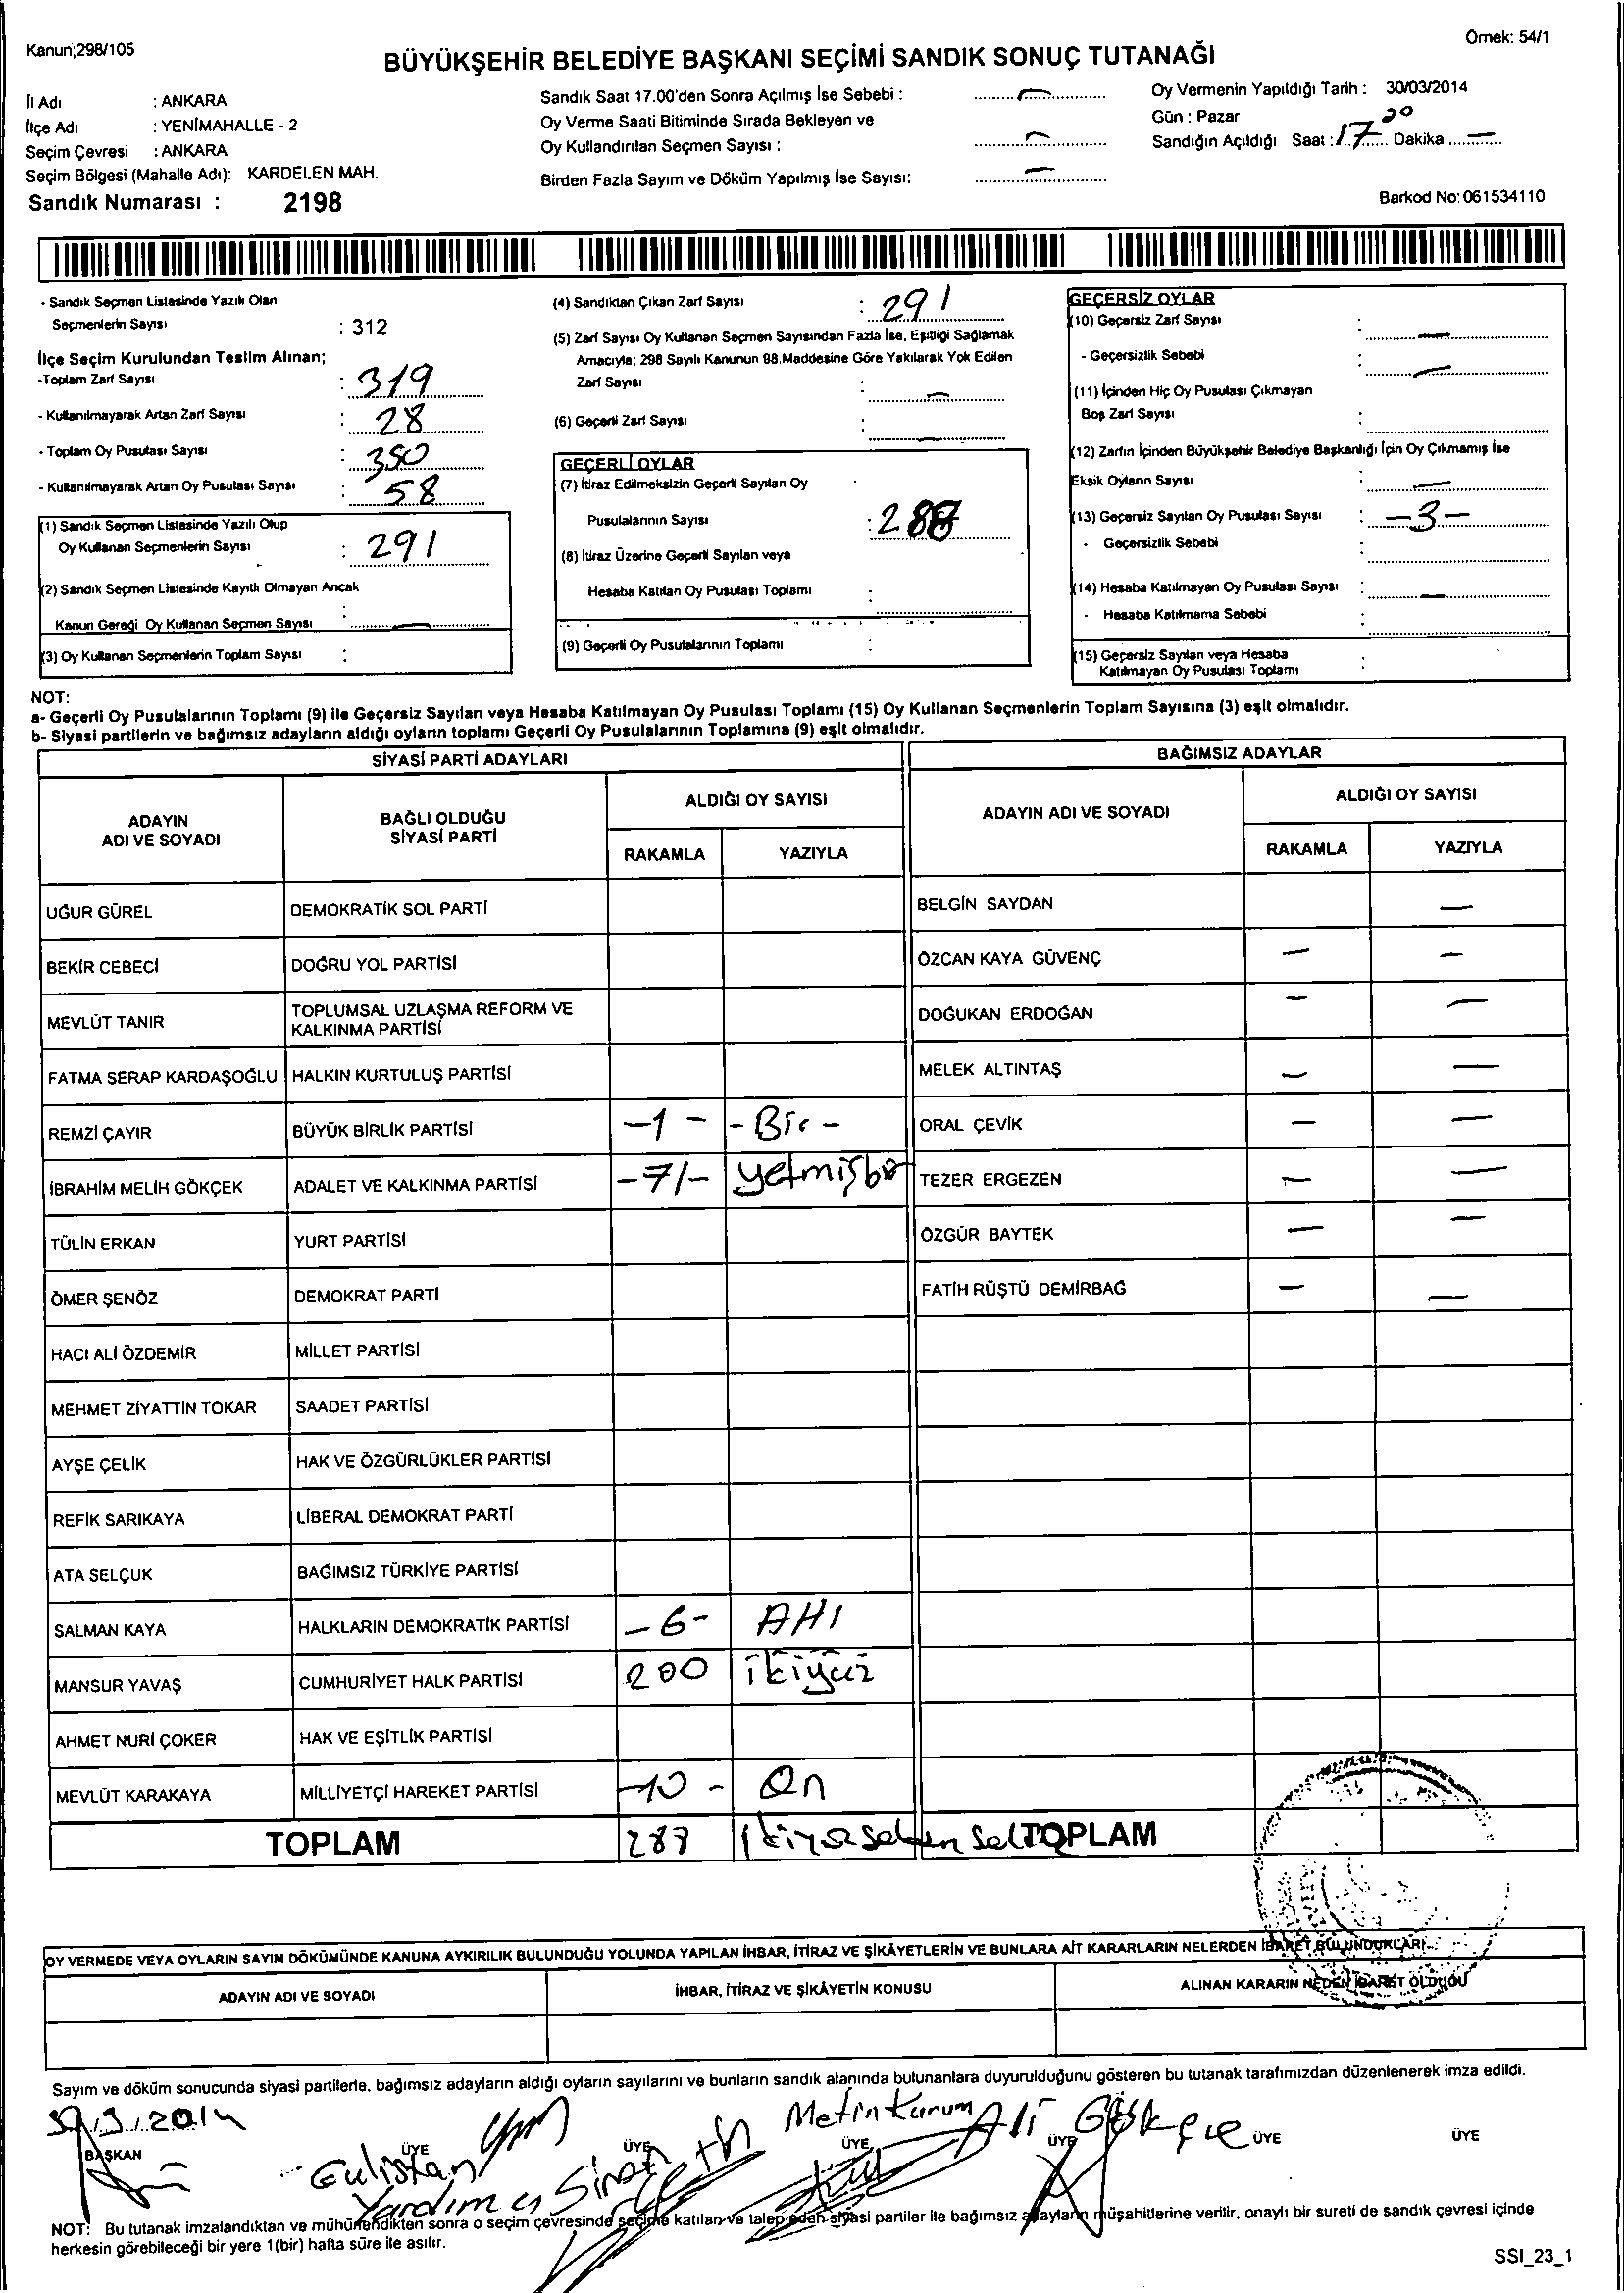 Kanun;298/105
Örnek: 54/1
BÜYÜKŞEHİR BELEDİYE BAŞKANI SEÇİMİ SANDIK SONUÇ TUTANAĞI
İl Adı : ANKARA
İlçe Adı : YENİMAHALLE - 2
Seçim Çevresi : ANKARA
Seçim Bölgesi (Mahalle Adı): KARDELEN MAH.
Sandık Numarası : 2198
Sandık Saat 17.00'den Sonra Açılmış İse Sebebi : —
Oy Verme Saati Bitiminde Sırada Bekleyen ve
Oy Kullandırılan Seçmen Sayısı : —
Birden Fazla Sayım ve Döküm Yapılmış İse Sayısı: —
Oy Vermenin Yapıldığı Tarih : 30/03/2014
Gün : Pazar
Sandığın Açıldığı Saat : 17 20 Dakika: —
Barkod No: 061534110
- Sandık Seçmen Listesinde Yazılı Olan
Seçmenlerin Sayısı : 312
İlçe Seçim Kurulundan Teslim Alınan;
-Toplam Zarf Sayısı : 319
- Kullanılmayarak Artan Zarf Sayısı : 28
- Toplam Oy Pusulası Sayısı : 350
- Kullanılmayarak Artan Oy Pusulası Sayısı : 58
(1) Sandık Seçmen Listesinde Yazılı Olup
Oy Kullanan Seçmenlerin Sayısı : 291
(2) Sandık Seçmen Listesinde Kayıtlı Olmayan Ancak
Kanun Gereği Oy Kullanan Seçmen Sayısı : —
(3) Oy Kullanan Seçmenlerin Toplam Sayısı :
(4) Sandıktan Çıkan Zarf Sayısı : 291
(5) Zarf Sayısı Oy Kullanan Seçmen Sayısından Fazla İse, Eşitliği Sağlamak
Amacıyla; 298 Sayılı Kanunun 98.Maddesine Göre Yakılarak Yok Edilen
Zarf Sayısı : —
(6) Geçerli Zarf Sayısı : —
GEÇERLİ OYLAR
(7) İtiraz Edilmeksizin Geçerli Sayılan Oy
Pusulalarının Sayısı : 288
(8) İtiraz Üzerine Geçerli Sayılan veya
Hesaba Katılan Oy Pusulası Toplamı :
(9) Geçerli Oy Pusulalarının Toplamı :
GEÇERSİZ OYLAR
(10) Geçersiz Zarf Sayısı : —
- Geçersizlik Sebebi : —
(11) İçinden Hiç Oy Pusulası Çıkmayan
Boş Zarf Sayısı :
(12) Zarfın İçinden Büyükşehir Belediye Başkanlığı İçin Oy Çıkmamış İse
Eksik Oyların Sayısı : —
(13) Geçersiz Sayılan Oy Pusulası Sayısı : -3-
- Geçersizlik Sebebi :
(14) Hesaba Katılmayan Oy Pusulası Sayısı : —
- Hesaba Katılmama Sebebi :
(15) Geçersiz Sayılan veya Hesaba
Katılmayan Oy Pusulası Toplamı :
NOT:
a- Geçerli Oy Pusulalarının Toplamı (9) ile Geçersiz Sayılan veya Hesaba Katılmayan Oy Pusulası Toplamı (15) Oy Kullanan Seçmenlerin Toplam Sayısına (3) eşit olmalıdır.
b- Siyasi partilerin ve bağımsız adayların aldığı oyların toplamı Geçerli Oy Pusulalarının Toplamına (9) eşit olmalıdır.
SİYASİ PARTİ ADAYLARI
BAĞIMSIZ ADAYLAR
ADAYIN ADI VE SOYADI
BAĞLI OLDUĞU SİYASİ PARTİ
ALDIĞI OY SAYISI
RAKAMLA YAZIYLA
ADAYIN ADI VE SOYADI
ALDIĞI OY SAYISI
RAKAMLA YAZIYLA
UĞUR GÜREL DEMOKRATİK SOL PARTİ BELGİN SAYDAN —
BEKİR CEBECİ DOĞRU YOL PARTİSİ ÖZCAN KAYA GÜVENÇ — —
MEVLÜT TANIR TOPLUMSAL UZLAŞMA REFORM VE KALKINMA PARTİSİ DOĞUKAN ERDOĞAN — —
FATMA SERAP KARDAŞOĞLU HALKIN KURTULUŞ PARTİSİ MELEK ALTINTAŞ — —
REMZİ ÇAYIR BÜYÜK BİRLİK PARTİSİ -1- -Bir- ORAL ÇEVİK — —
İBRAHİM MELİH GÖKÇEK ADALET VE KALKINMA PARTİSİ -71- yetmişbir TEZER ERGEZEN — —
TÜLİN ERKAN YURT PARTİSİ ÖZGÜR BAYTEK — —
ÖMER ŞENÖZ DEMOKRAT PARTİ FATİH RÜŞTÜ DEMİRBAĞ — —
HACI ALİ ÖZDEMİR MİLLET PARTİSİ
MEHMET ZİYATTİN TOKAR SAADET PARTİSİ
AYŞE ÇELİK HAK VE ÖZGÜRLÜKLER PARTİSİ
REFİK SARIKAYA LİBERAL DEMOKRAT PARTİ
ATA SELÇUK BAĞIMSIZ TÜRKİYE PARTİSİ
SALMAN KAYA HALKLARIN DEMOKRATİK PARTİSİ -6- AHI
MANSUR YAVAŞ CUMHURİYET HALK PARTİSİ 200 ikiyüz
AHMET NURİ ÇOKER HAK VE EŞİTLİK PARTİSİ
MEVLÜT KARAKAYA MİLLİYETÇİ HAREKET PARTİSİ -10- On
TOPLAM 288 TOPLAM
OY VERMEDE VEYA OYLARIN SAYIM DÖKÜMÜNDE KANUNA AYKIRILIK BULUNDUĞU YOLUNDA YAPILAN İHBAR, İTİRAZ VE ŞİKÂYETLERİN VE BUNLARA AİT KARARLARIN NELERDEN İBARET BULUNDUKLARI
ADAYIN ADI VE SOYADI İHBAR, İTİRAZ VE ŞİKÂYETİN KONUSU ALINAN KARARIN NEDEN İBARET OLDUĞU
Sayım ve döküm sonucunda siyasi partilerle, bağımsız adayların aldığı oyların sayılarını ve bunların sandık alanında bulunanlara duyurulduğunu gösteren bu tutanak tarafımızdan düzenlenerek imza edildi.
30/3/2014 Metin Kurum Ali Gökçe
BAŞKAN ÜYE ÜYE ÜYE ÜYE ÜYE ÜYE
Gülistan
Yardımcı
NOT: Bu tutanak imzalandıktan ve mühürlendikten sonra o seçim çevresinde seçime katılan ve talep eden siyasi partiler ile bağımsız adayların müşahitlerine verilir, onaylı bir sureti de sandık çevresi içinde
herkesin görebileceği bir yere 1(bir) hafta süre ile asılır.
SSI_23_1